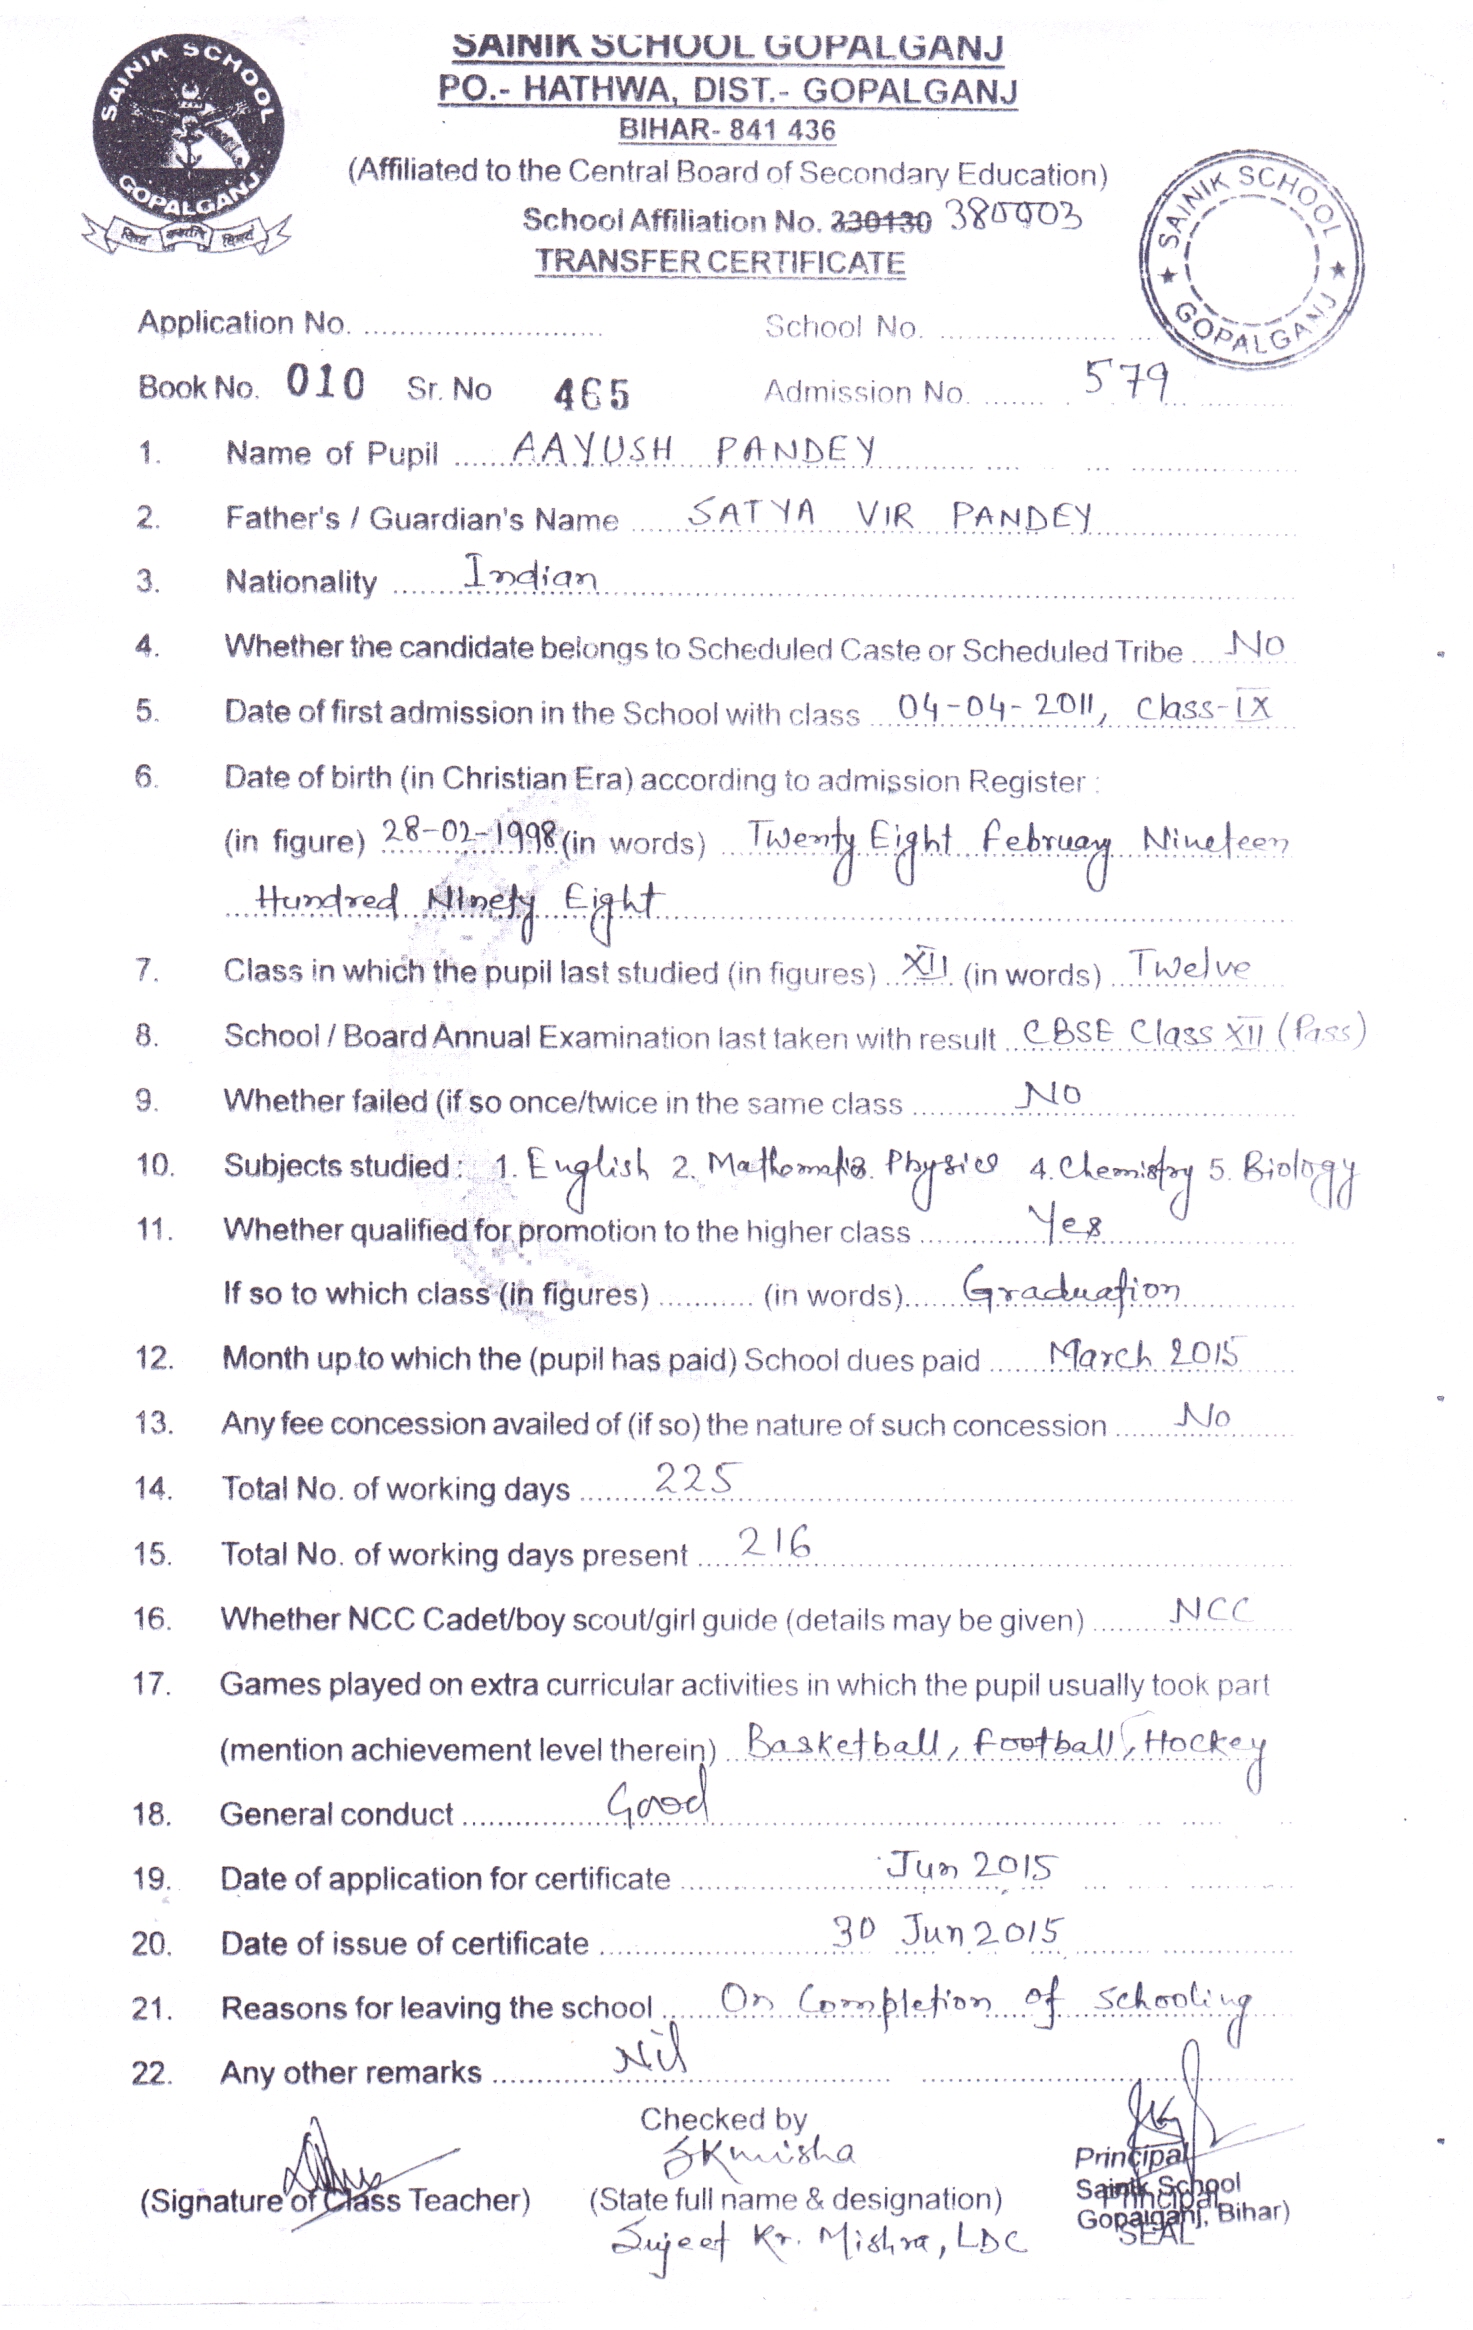 SAINIK SCHOOL GOPALGANJ
PO.- HATHWA, DIST.- GOPALGANJ
BIHAR- 841 436
(Affiliated to the Central Board of Secondary Education)
School Affiliation No. 330130 380003
TRANSFER CERTIFICATE
SAINIK SCHOOL GOPALGANJ
SAINIK SCHOOL GOPALGANJ
Application No. ........ School No. ........
Book No. 010 Sr. No 465 Admission No. 579
1. Name of Pupil AAYUSH PANDEY
2. Father's / Guardian's Name SATYA VIR PANDEY
3. Nationality Indian
4. Whether the candidate belongs to Scheduled Caste or Scheduled Tribe No
5. Date of first admission in the School with class 04-04-2011, Class-IX
6. Date of birth (in Christian Era) according to admission Register :
(in figure) 28-02-1998 (in words) Twenty Eight February Nineteen
Hundred Ninety Eight
7. Class in which the pupil last studied (in figures) XII (in words) Twelve
8. School / Board Annual Examination last taken with result CBSE Class XII (Pass)
9. Whether failed (if so once/twice in the same class No
10. Subjects studied : 1. English 2. Mathematics 3. Physics 4. Chemistry 5. Biology
11. Whether qualified for promotion to the higher class Yes
If so to which class (in figures) ........ (in words) Graduation
12. Month up to which the (pupil has paid) School dues paid March 2015
13. Any fee concession availed of (if so) the nature of such concession No
14. Total No. of working days 225
15. Total No. of working days present 216
16. Whether NCC Cadet/boy scout/girl guide (details may be given) NCC
17. Games played on extra curricular activities in which the pupil usually took part
(mention achievement level therein) Basketball, Football, Hockey
18. General conduct Good
19. Date of application for certificate Jun 2015
20. Date of issue of certificate 30 Jun 2015
21. Reasons for leaving the school On Completion of Schooling
22. Any other remarks Nil
Checked by
SKmisha
(Signature of Class Teacher) (State full name & designation)
Sujeet Kr. Mishra, LDC
Principal
Sainik School
Principal
Gopalganj, Bihar)
SEAL